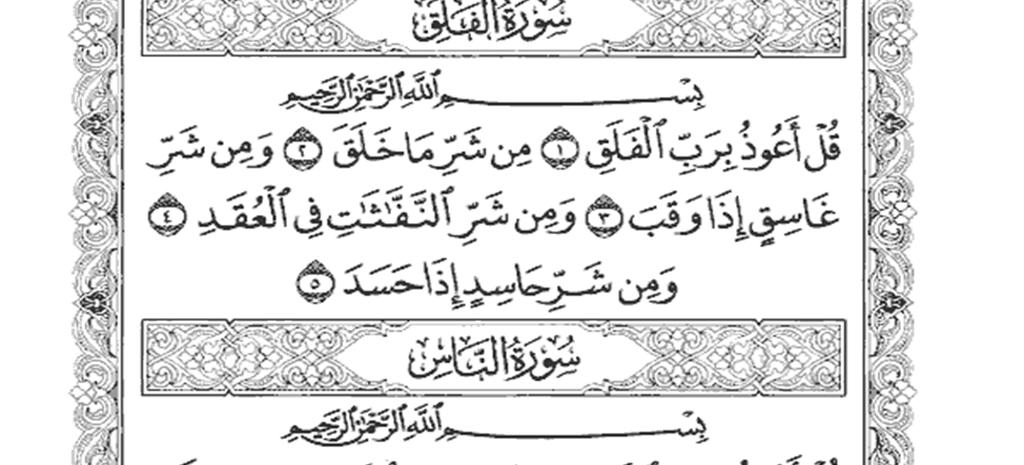 سُورَةُ الفَلَقِ
بِسْمِ ٱللَّهِ ٱلرَّحْمَٰنِ ٱلرَّحِيمِ
قُلْ أَعُوذُ بِرَبِّ ٱلْفَلَقِ ١ مِن شَرِّ مَا خَلَقَ ٢ وَمِن شَرِّ
غَاسِقٍ إِذَا وَقَبَ ٣ وَمِن شَرِّ ٱلنَّفَّٰثَٰتِ فِى ٱلْعُقَدِ ٤
وَمِن شَرِّ حَاسِدٍ إِذَا حَسَدَ ٥
سُورَةُ النَّاسِ
بِسْمِ ٱللَّهِ ٱلرَّحْمَٰنِ ٱلرَّحِيمِ